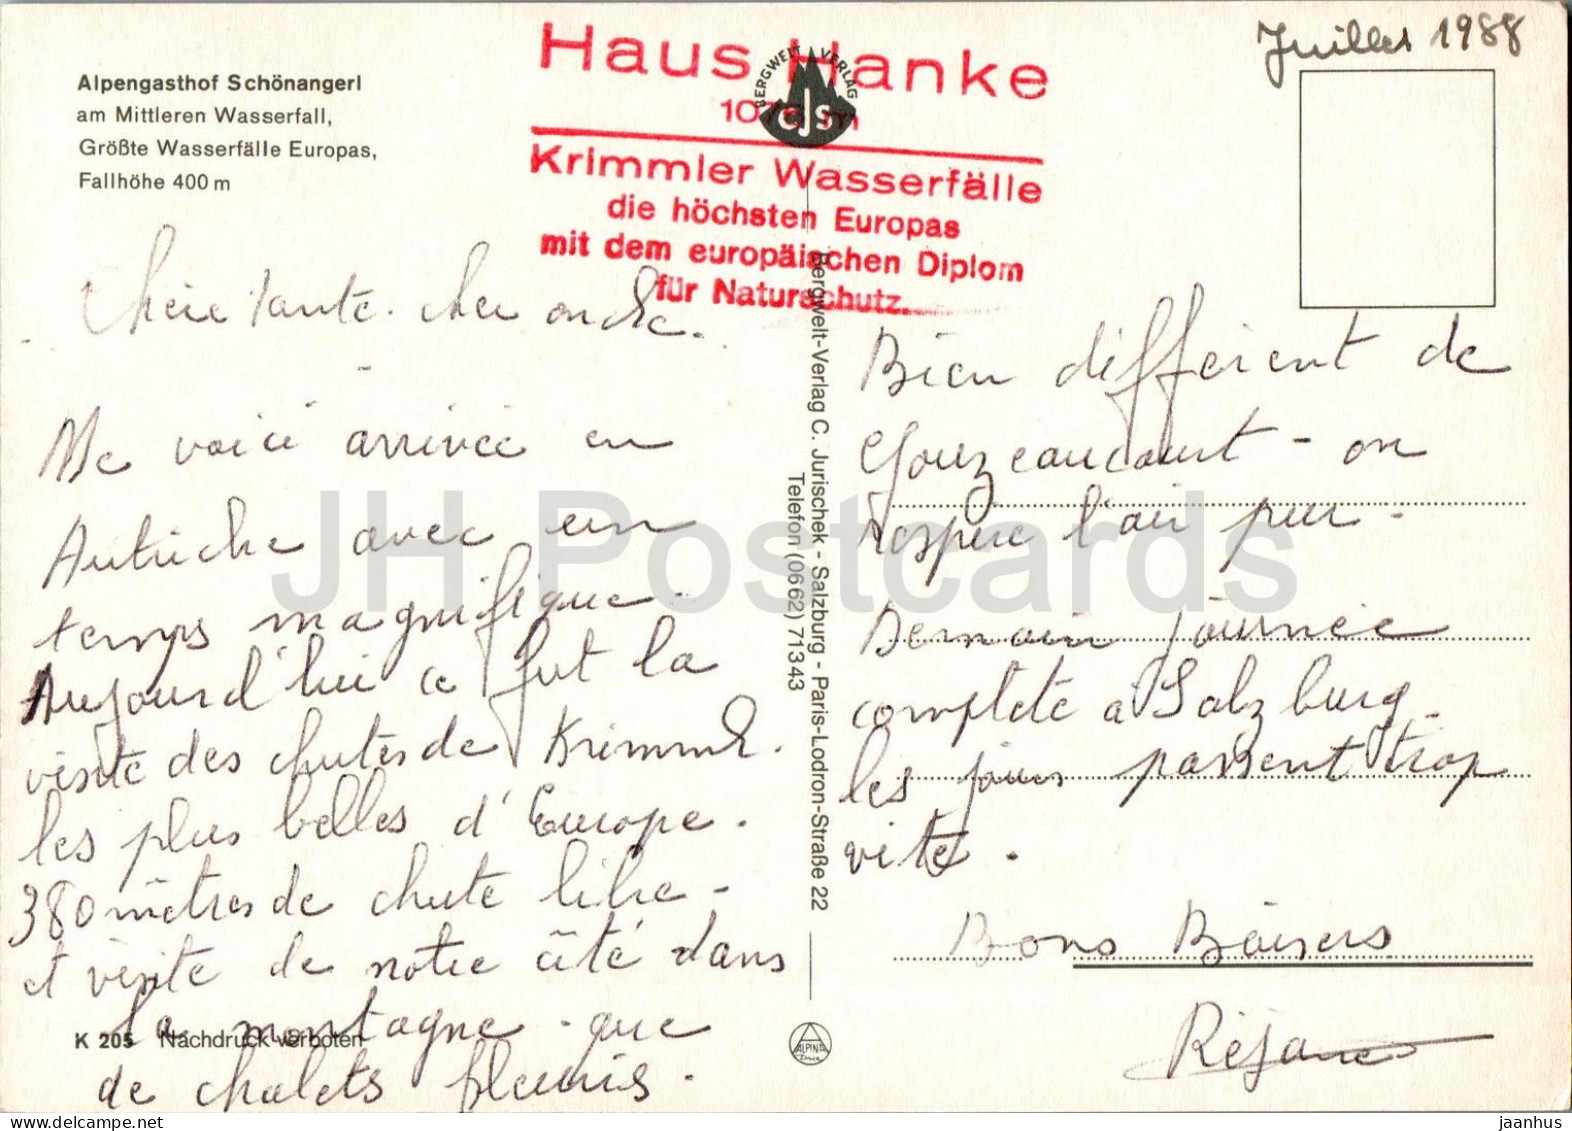 Juillet 1988
Alpengasthof Schönangerl
am Mittleren Wasserfall,
Größte Wasserfälle Europas,
Fallhöhe 400 m
Haus Hanke
1076 m
Krimmler Wasserfälle
die höchsten Europas
mit dem europäischen Diplom
für Naturschutz.
BERGWELT VERLAG
CJS
Chère tante. cher oncle.
Me voici arrivée en
Autriche avec un
temps magnifique.
Aujourd'hui ce fut la
visite des chutes de Krimml.
les plus belles d'Europe.
380 mètres de chute libre -
et visite de notre cité dans
la montagne - que
de chalets fleuris.
K 205 Nachdruck verboten
Bergwelt-Verlag C. Jurischek - Salzburg - Paris-Lodron-Straße 22
Telefon (0662) 71343
ALPINA
Bien différent de
Gouzeaucourt - on
respire l'air pur -
Demain journée
complète à Salzburg.
les jours passent trop
vite.
Bons Baisers
Réjane
JH Postcards
www.delcampe.net
jaanhus